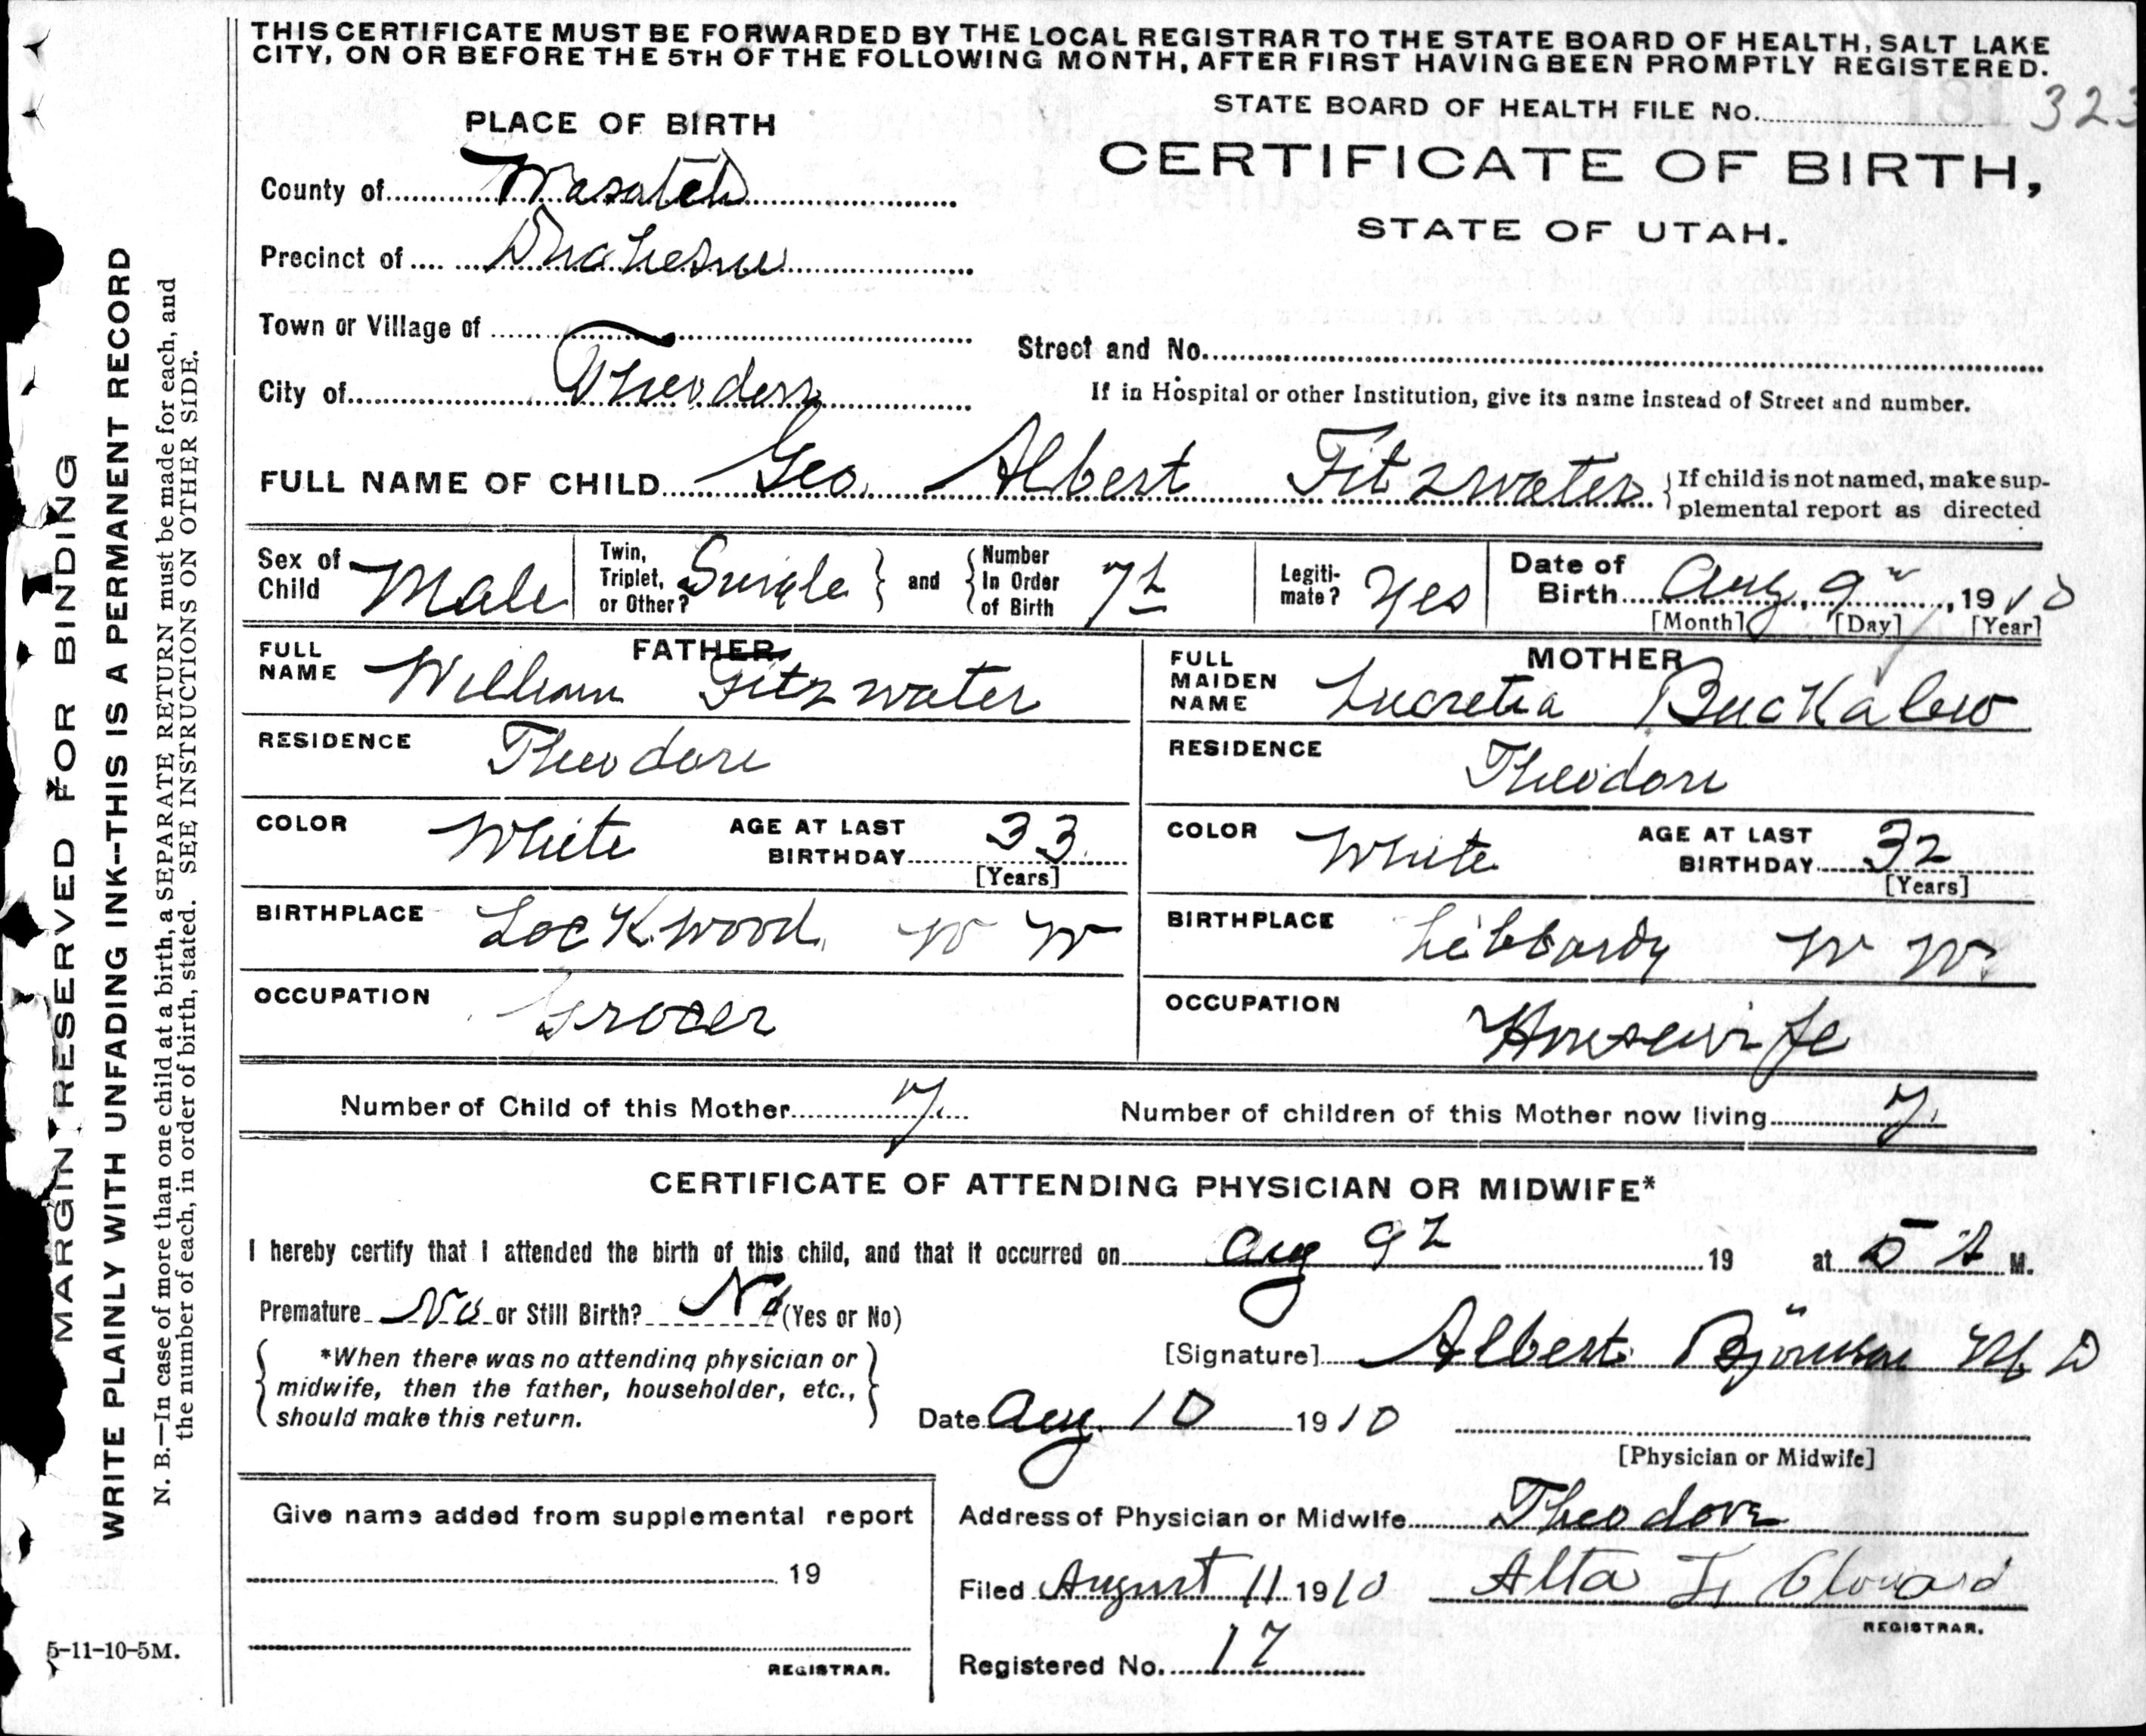 THIS CERTIFICATE MUST BE FORWARDED BY THE LOCAL REGISTRAR TO THE STATE BOARD OF HEALTH, SALT LAKE
CITY, ON OR BEFORE THE 5TH OF THE FOLLOWING MONTH, AFTER FIRST HAVING BEEN PROMPTLY REGISTERED.
STATE BOARD OF HEALTH FILE No. 323
PLACE OF BIRTH
CERTIFICATE OF BIRTH,
STATE OF UTAH.
County of Wasatch
Precinct of Duchesne
Town or Village of
Street and No.
City of Theodore
If in Hospital or other Institution, give its name instead of Street and number.
FULL NAME OF CHILD Geo. Albert Fitzwater { If child is not named, make sup-
plemental report as directed
Sex of Child Male
Twin, Triplet, or Other? Single } and { Number In Order of Birth 7th
Legiti-mate? Yes
Date of Birth Aug. 9th, 1910
[Month] [Day] [Year]
FATHER
FULL NAME William Fitzwater
RESIDENCE Theodore
COLOR White AGE AT LAST BIRTHDAY 33
[Years]
BIRTHPLACE Lockwood, W W
OCCUPATION Grocer
MOTHER
FULL MAIDEN NAME Lucretia Buckalew
RESIDENCE Theodore
COLOR White AGE AT LAST BIRTHDAY 32
[Years]
BIRTHPLACE W W
OCCUPATION Housewife
Number of Child of this Mother 7. Number of children of this Mother now living 7.
CERTIFICATE OF ATTENDING PHYSICIAN OR MIDWIFE*
I hereby certify that I attended the birth of this child, and that it occurred on Aug 9th 19 at 5 A M.
Premature No or Still Birth? No (Yes or No)
{ *When there was no attending physician or
midwife, then the father, householder, etc.,
should make this return. }
[Signature] Albert M D
Date Aug. 10 1910
[Physician or Midwife]
Give name added from supplemental report
19
REGISTRAR.
Address of Physician or Midwife Theodore
Filed August 11 1910 Alta
REGISTRAR.
Registered No. 17
MARGIN RESERVED FOR BINDING
WRITE PLAINLY WITH UNFADING INK--THIS IS A PERMANENT RECORD
N. B.—In case of more than one child at a birth, a SEPARATE RETURN must be made for each, and
the number of each, in order of birth, stated. SEE INSTRUCTIONS ON OTHER SIDE.
5-11-10-5M.